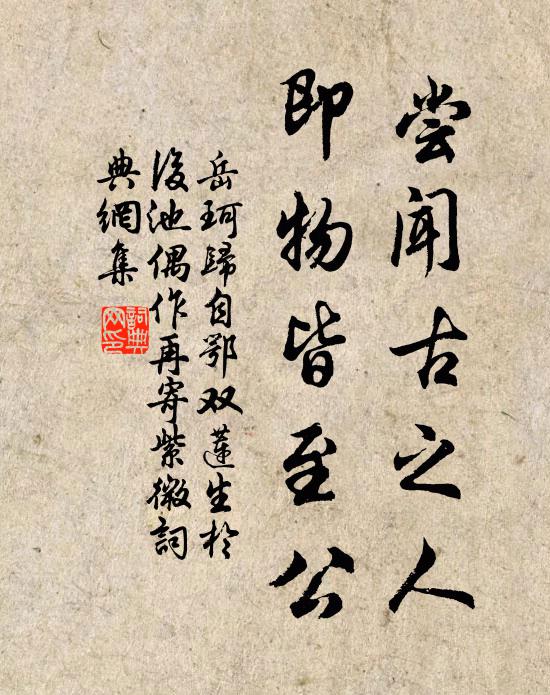 尝闻古之人
即物皆至公
岳珂歸自鄂双蓮生於
後池偶作再寄紫微詞
典網集
詞典网印